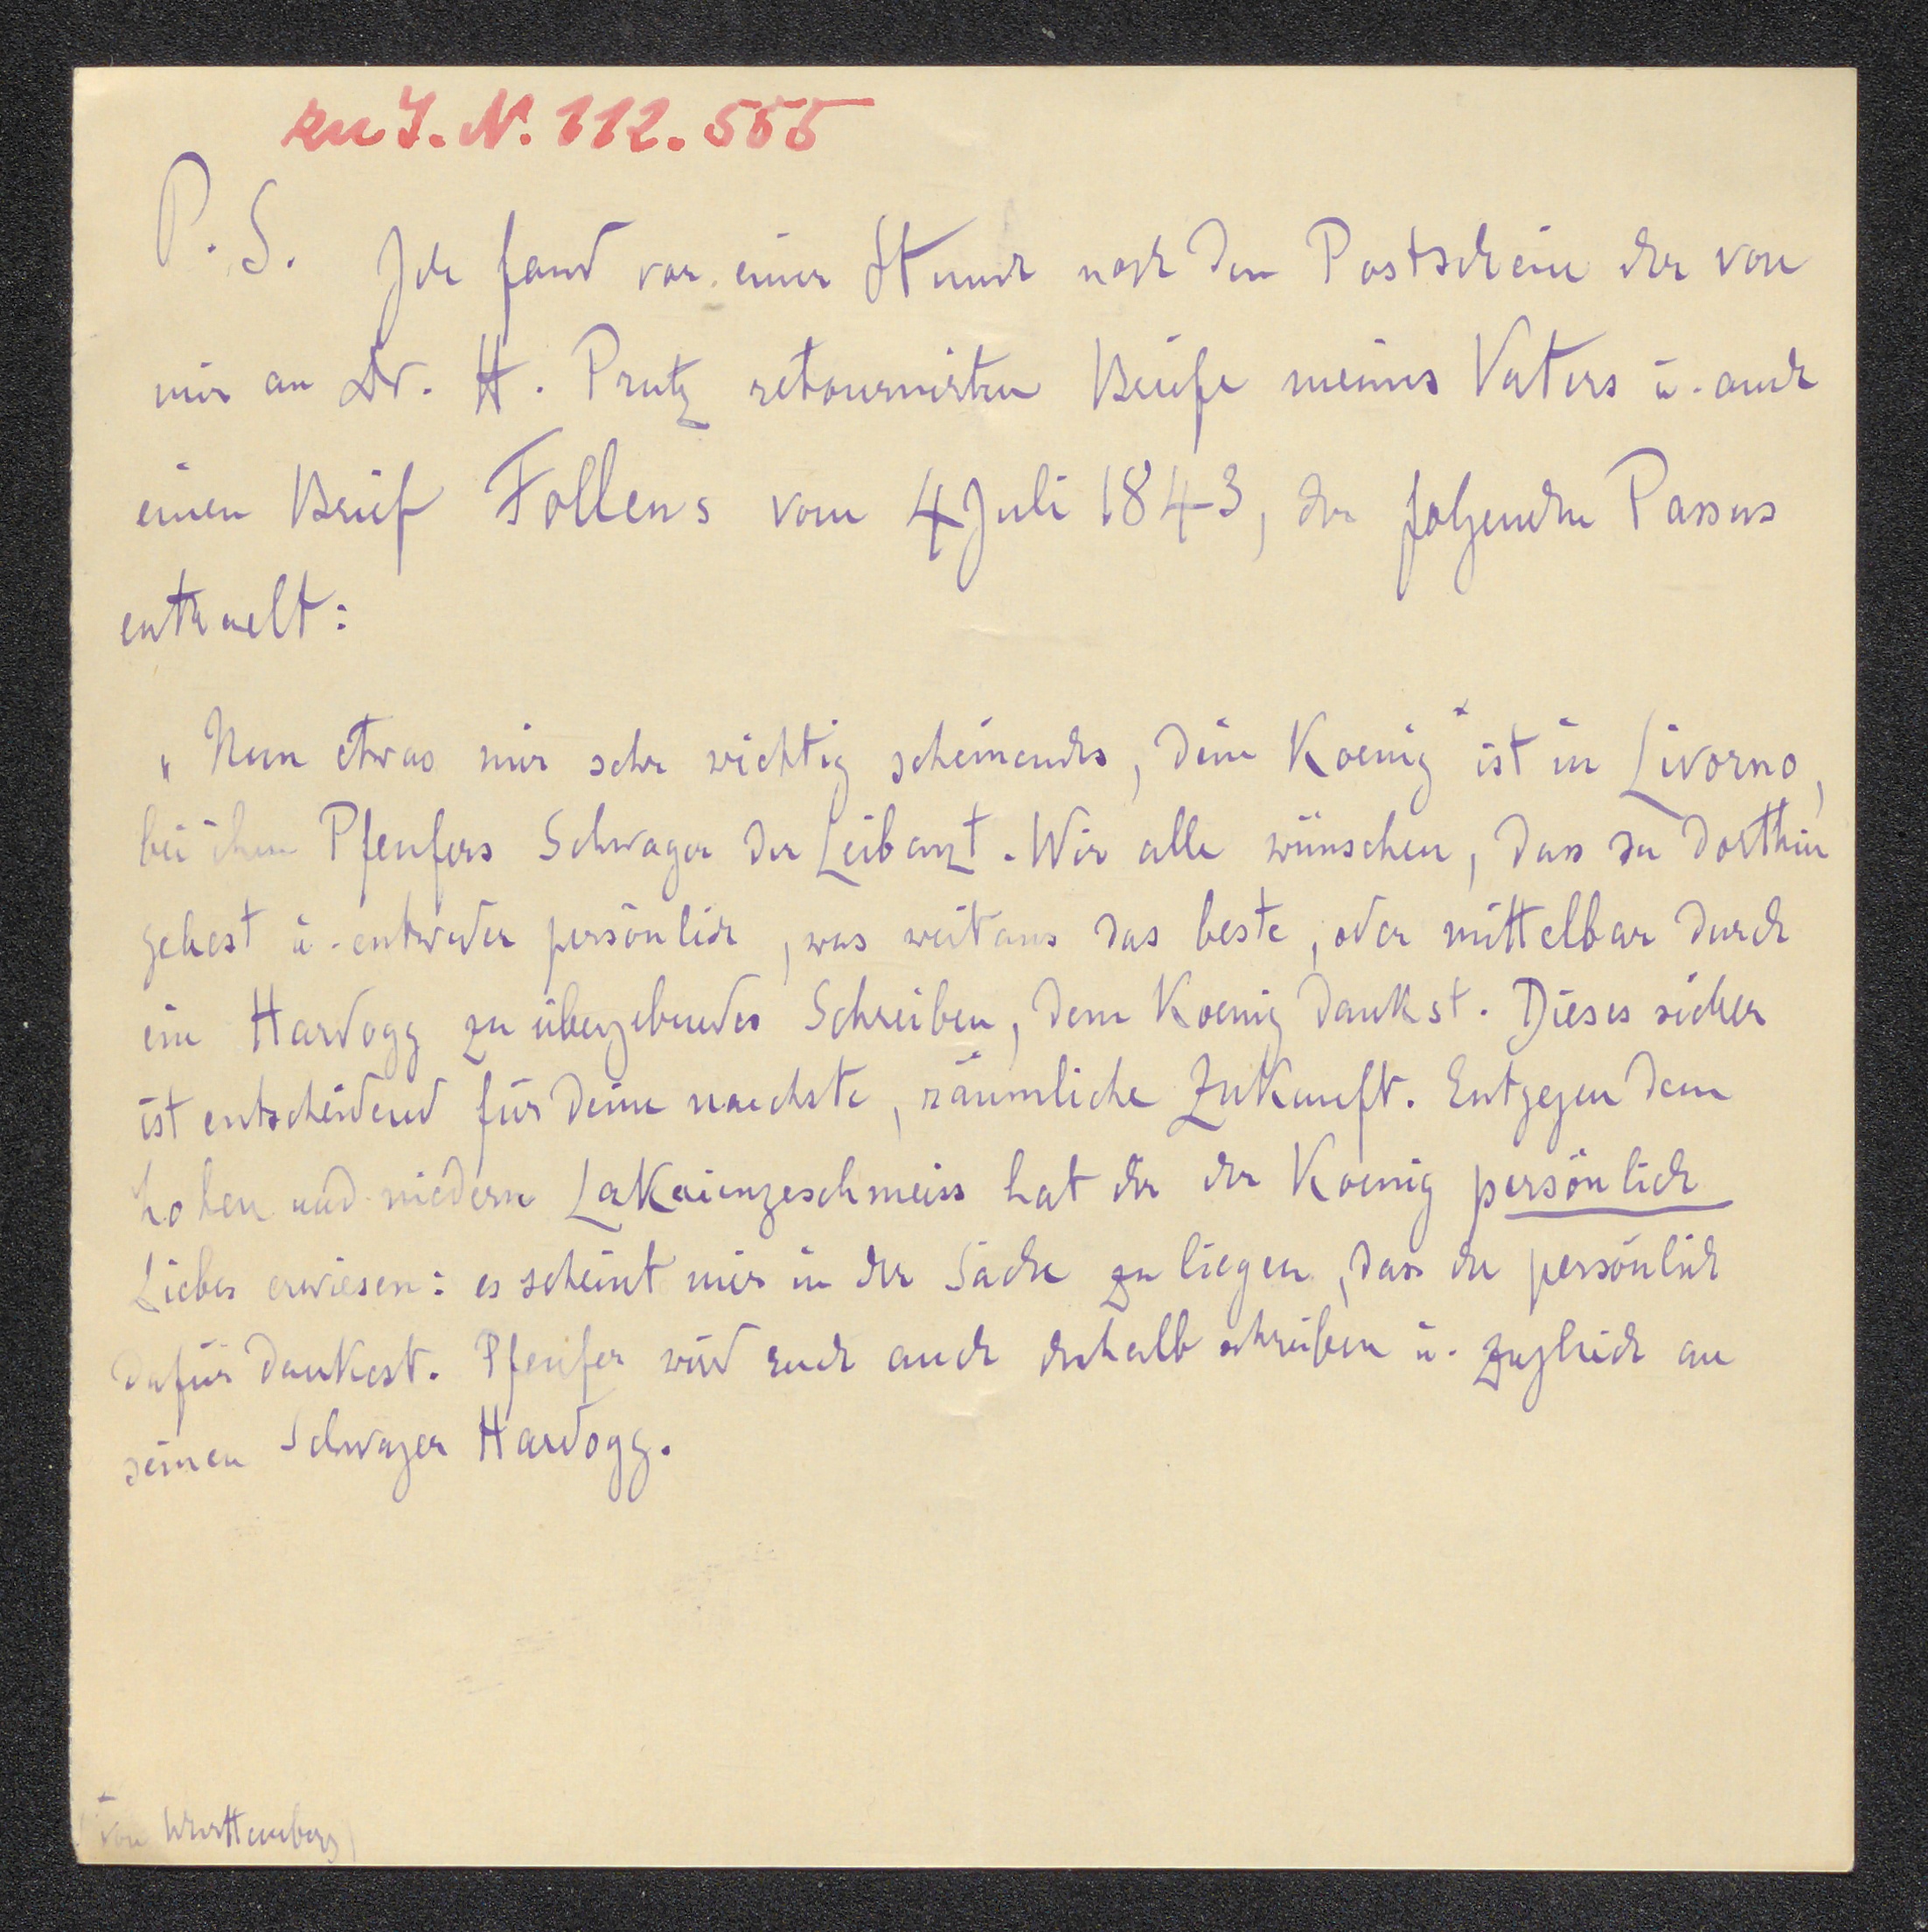 zu I. N. 112.555
P. S. Ich fand vor einer Stunde noch den Postschein der von
mir an Dr. H. Prutz retournirten Briefe meines Vaters u. auch
einen Brief Follens vom 4 Juli 1843, der folgenden Passus
enthaelt:
„Nun etwas mir sehr wichtig scheinendes, dein Koenig + ist in Livorno,
bei ihm Pfeufers Schwager der Leibarzt. Wir alle wünschen, dass du dorthin
gehest u. entweder persönlich, was weitaus das beste, oder mittelbar durch
ein Hardogg zu übergebendes Schreiben, dem Koenig dankst. Dieses sicher
ist entscheidend für deine naechste, räumliche Zukunft. Entgegen dem
hohen und niedern Lakaiengeschmeiss hat dir der Koenig persönlich
Liebes erwiesen: es scheint mir in der Sache zu liegen, dass du persönlich
dafür dankest. Pfeufer wird euch auch deshalb schreiben u. zugleich an
seinen Schwager Hardogg.
+ von Württemberg